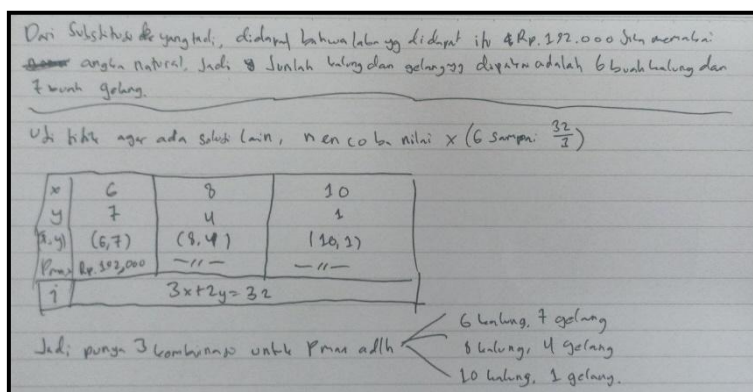 Dari Substitusi yang tadi, didapat bahwa laba yg didapat itu Rp.192.000 jika memakai
angka natural. Jadi Jumlah kalung dan gelang yg dipakai adalah 6 buah kalung dan
7 buah gelang.
Uji titik agar ada solusi lain, mencoba nilai x (6 sampai 32/3)
x 6 8 10
y 7 4 1
(x,y) (6,7) (8,4) (10,1)
Pmax Rp.192,000 —〃— —〃—
i 3x+2y=32
6 kalung, 7 gelang
Jadi punya 3 kombinasi untuk Pmax adlh 8 kalung, 4 gelang
10 kalung, 1 gelang.